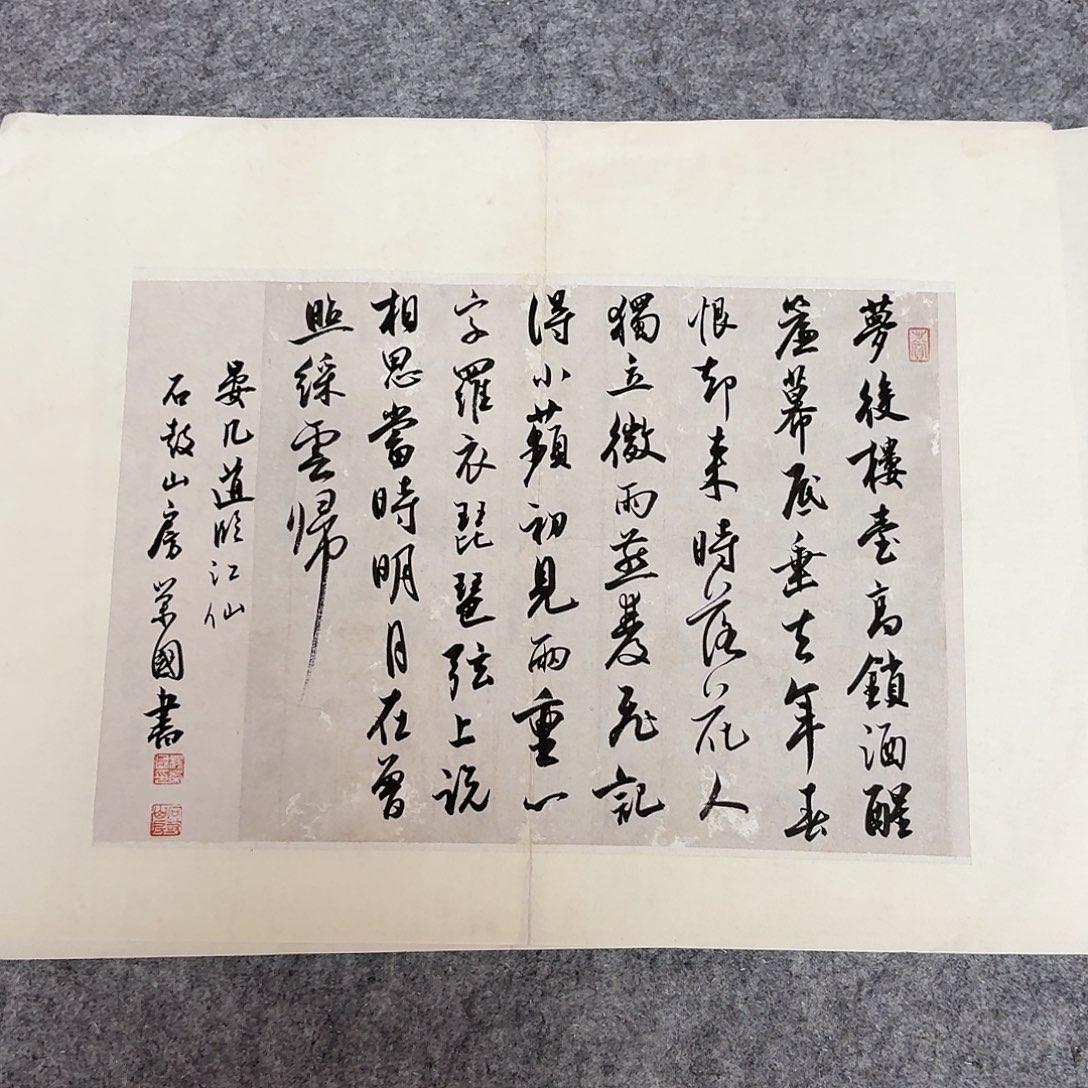 夢後樓臺高鎖酒醒
簾幕底垂去年春
恨却來時落花人
獨立微雨燕雙飛記
得小蘋初見兩重心
字羅衣琵琶弦上說
相思當時明月在曾
照綵雲歸
晏几道臨江仙
石鼓山房榮國書